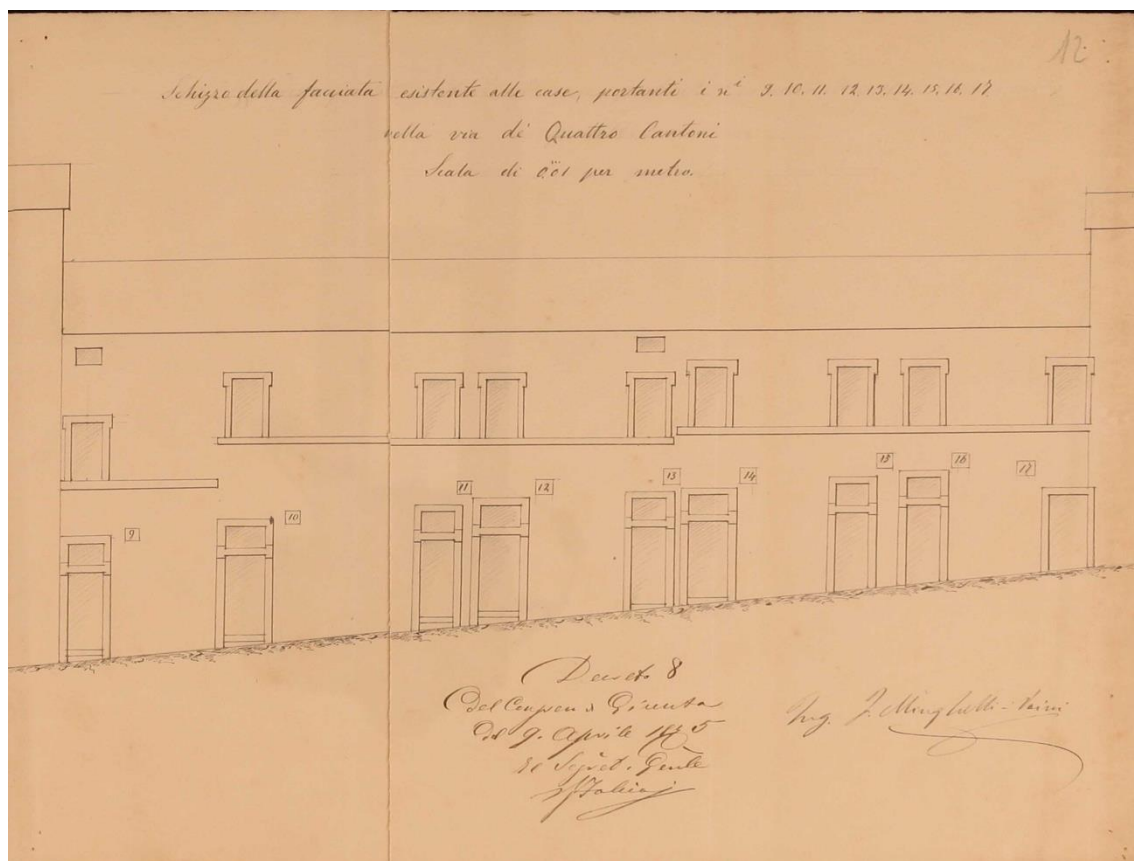 12
Schizzo della facciata esistente alle case, portanti i ni 9. 10. 11. 12. 13. 14. 15. 16. 17
nella via di Quattro Cantoni
Scala di 0.m01 per metro.
9
10
11
12
13
14
15
16
17
Decreto 8
del 9. Aprile
Il Segret. Genle
Ing.